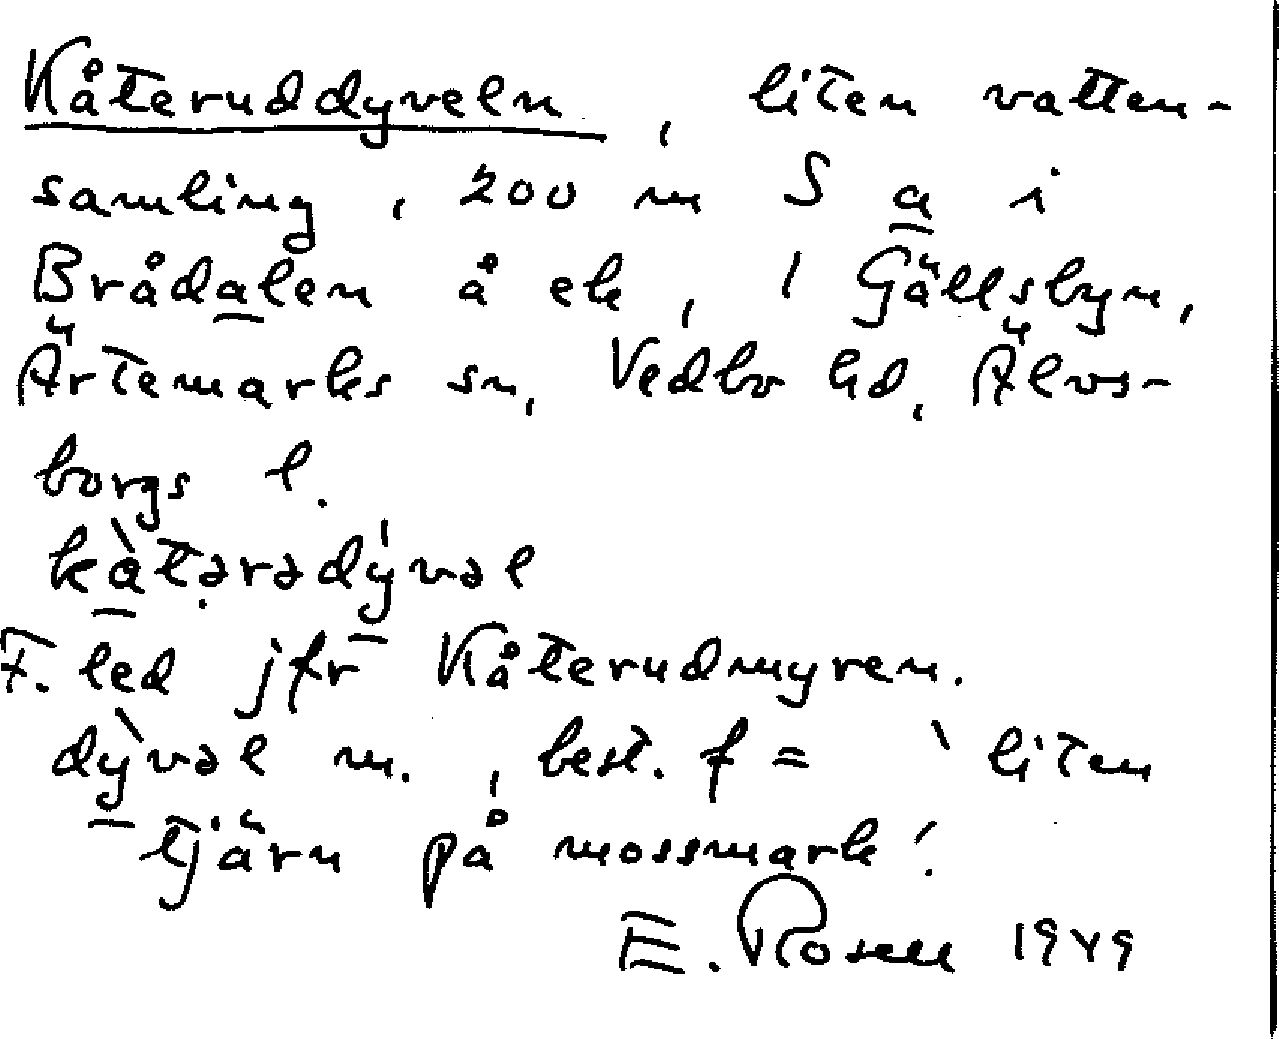 Kåteruddyveln, liten vatten-
samling, 200 m S a i
Brådalen å ek, 1 Gällsbyn,
Ärtemarks sn, Vedbo hd, Älvs-
borgs l.
kàt̠ərədývəl
F. led jfr Kåterudmyren.
dỳvəl m., best. f = ' liten
tjärn på mossmark'.
E. Rosell 1949